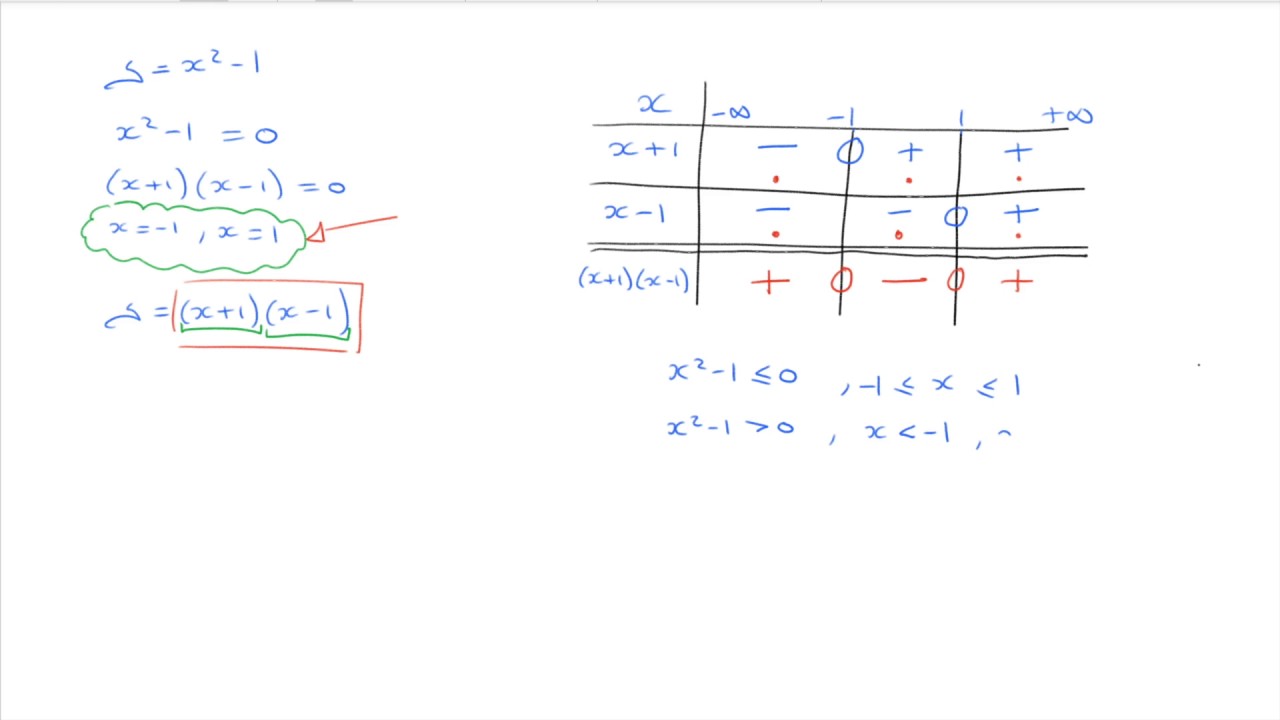 y = x² - 1
x² - 1 = 0
(x+1)(x-1) = 0
x = -1 , x = 1
y = (x+1)(x-1)
x -∞ -1 1 +∞
x+1 − 0 + +
x-1 − − 0 +
(x+1)(x-1) + 0 − 0 +
x² - 1 ≤ 0 , -1 ≤ x ≤ 1
x² - 1 > 0 , x < -1 ,